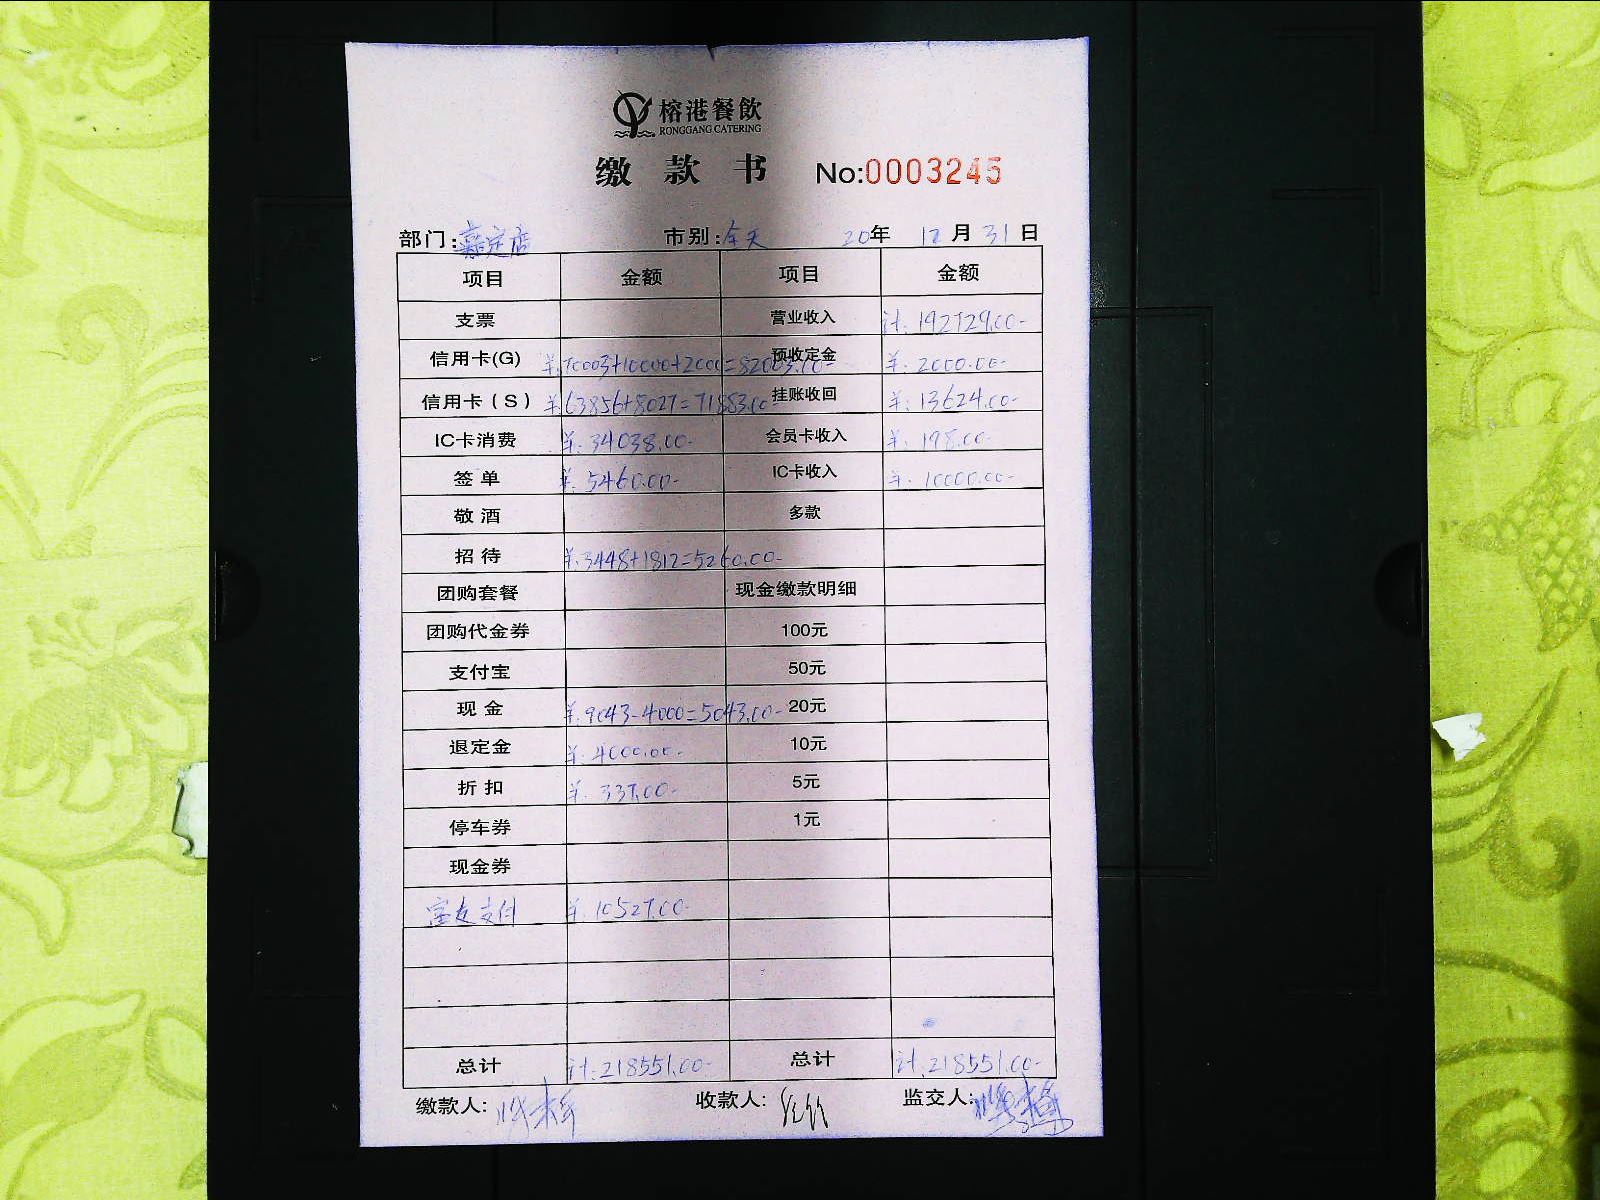 榕港餐飲
RONGGANG CATERING
缴款书 No:0003245
部门:嘉定店 市别:全天 20年 12月 31日
项目 金额 项目 金额
支票 营业收入 计:192729.00-
信用卡(G) ¥:70003+10000+2000=82003.00- 预收定金 ¥:2000.00-
信用卡(S) ¥:63856+8027=71883.00- 挂账收回 ¥:13624.00-
IC卡消费 ¥:34038.00- 会员卡收入 ¥:198.00-
签单 ¥:5460.00- IC卡收入 ¥:10000.00-
敬酒 多款
招待 ¥:3448+1812=5260.00-
团购套餐 现金缴款明细
团购代金券 100元
支付宝 50元
现金 ¥:9043-4000=5043.00- 20元
退定金 ¥:4000.00- 10元
折扣 ¥:337.00- 5元
停车券 1元
现金券
支付 ¥:10527.00-
总计 计:218551.00- 总计 计:218551.00-
缴款人: 收款人: 监交人: